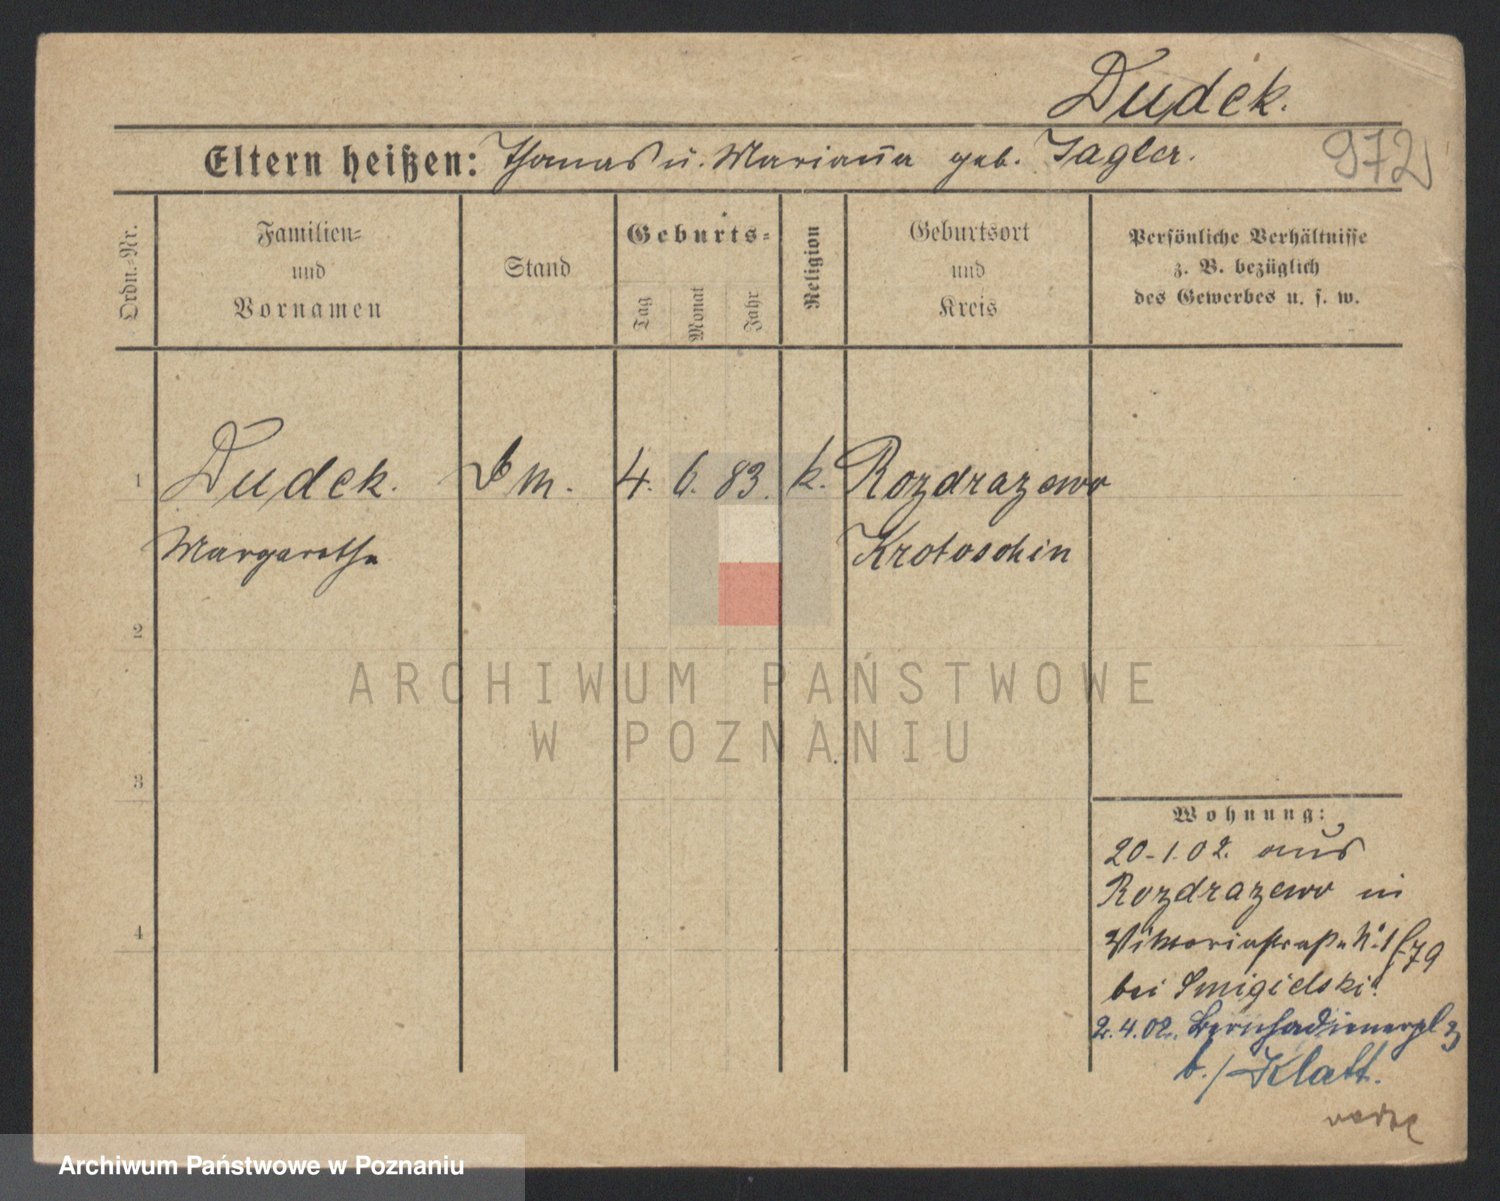 Dudek.
Eltern heißen: Thomas u. Marianna geb. Jagler.
972
Ordn.-Nr.
Familien-
und
Vornamen
Stand
Geburts-
Tag
Monat
Jahr
Religion
Geburtsort
und
Kreis
Persönliche Verhältnisse
z. B. bezüglich
des Gewerbes u. s. w.
1 Dudek. D m. 4. 6. 83. k. Rozdrazewo
Margarethe Krotoschin
2
3
4
ARCHIWUM PAŃSTWOWE
W POZNANIU
Wohnung:
20.1.02. aus
Rozdrazewo in
Viktoriastraße N° 1 f 79
bei Smigielski.
2.4.02. Bernhadinerpl 3
b./Klatt.
Archiwum Państwowe w Poznaniu